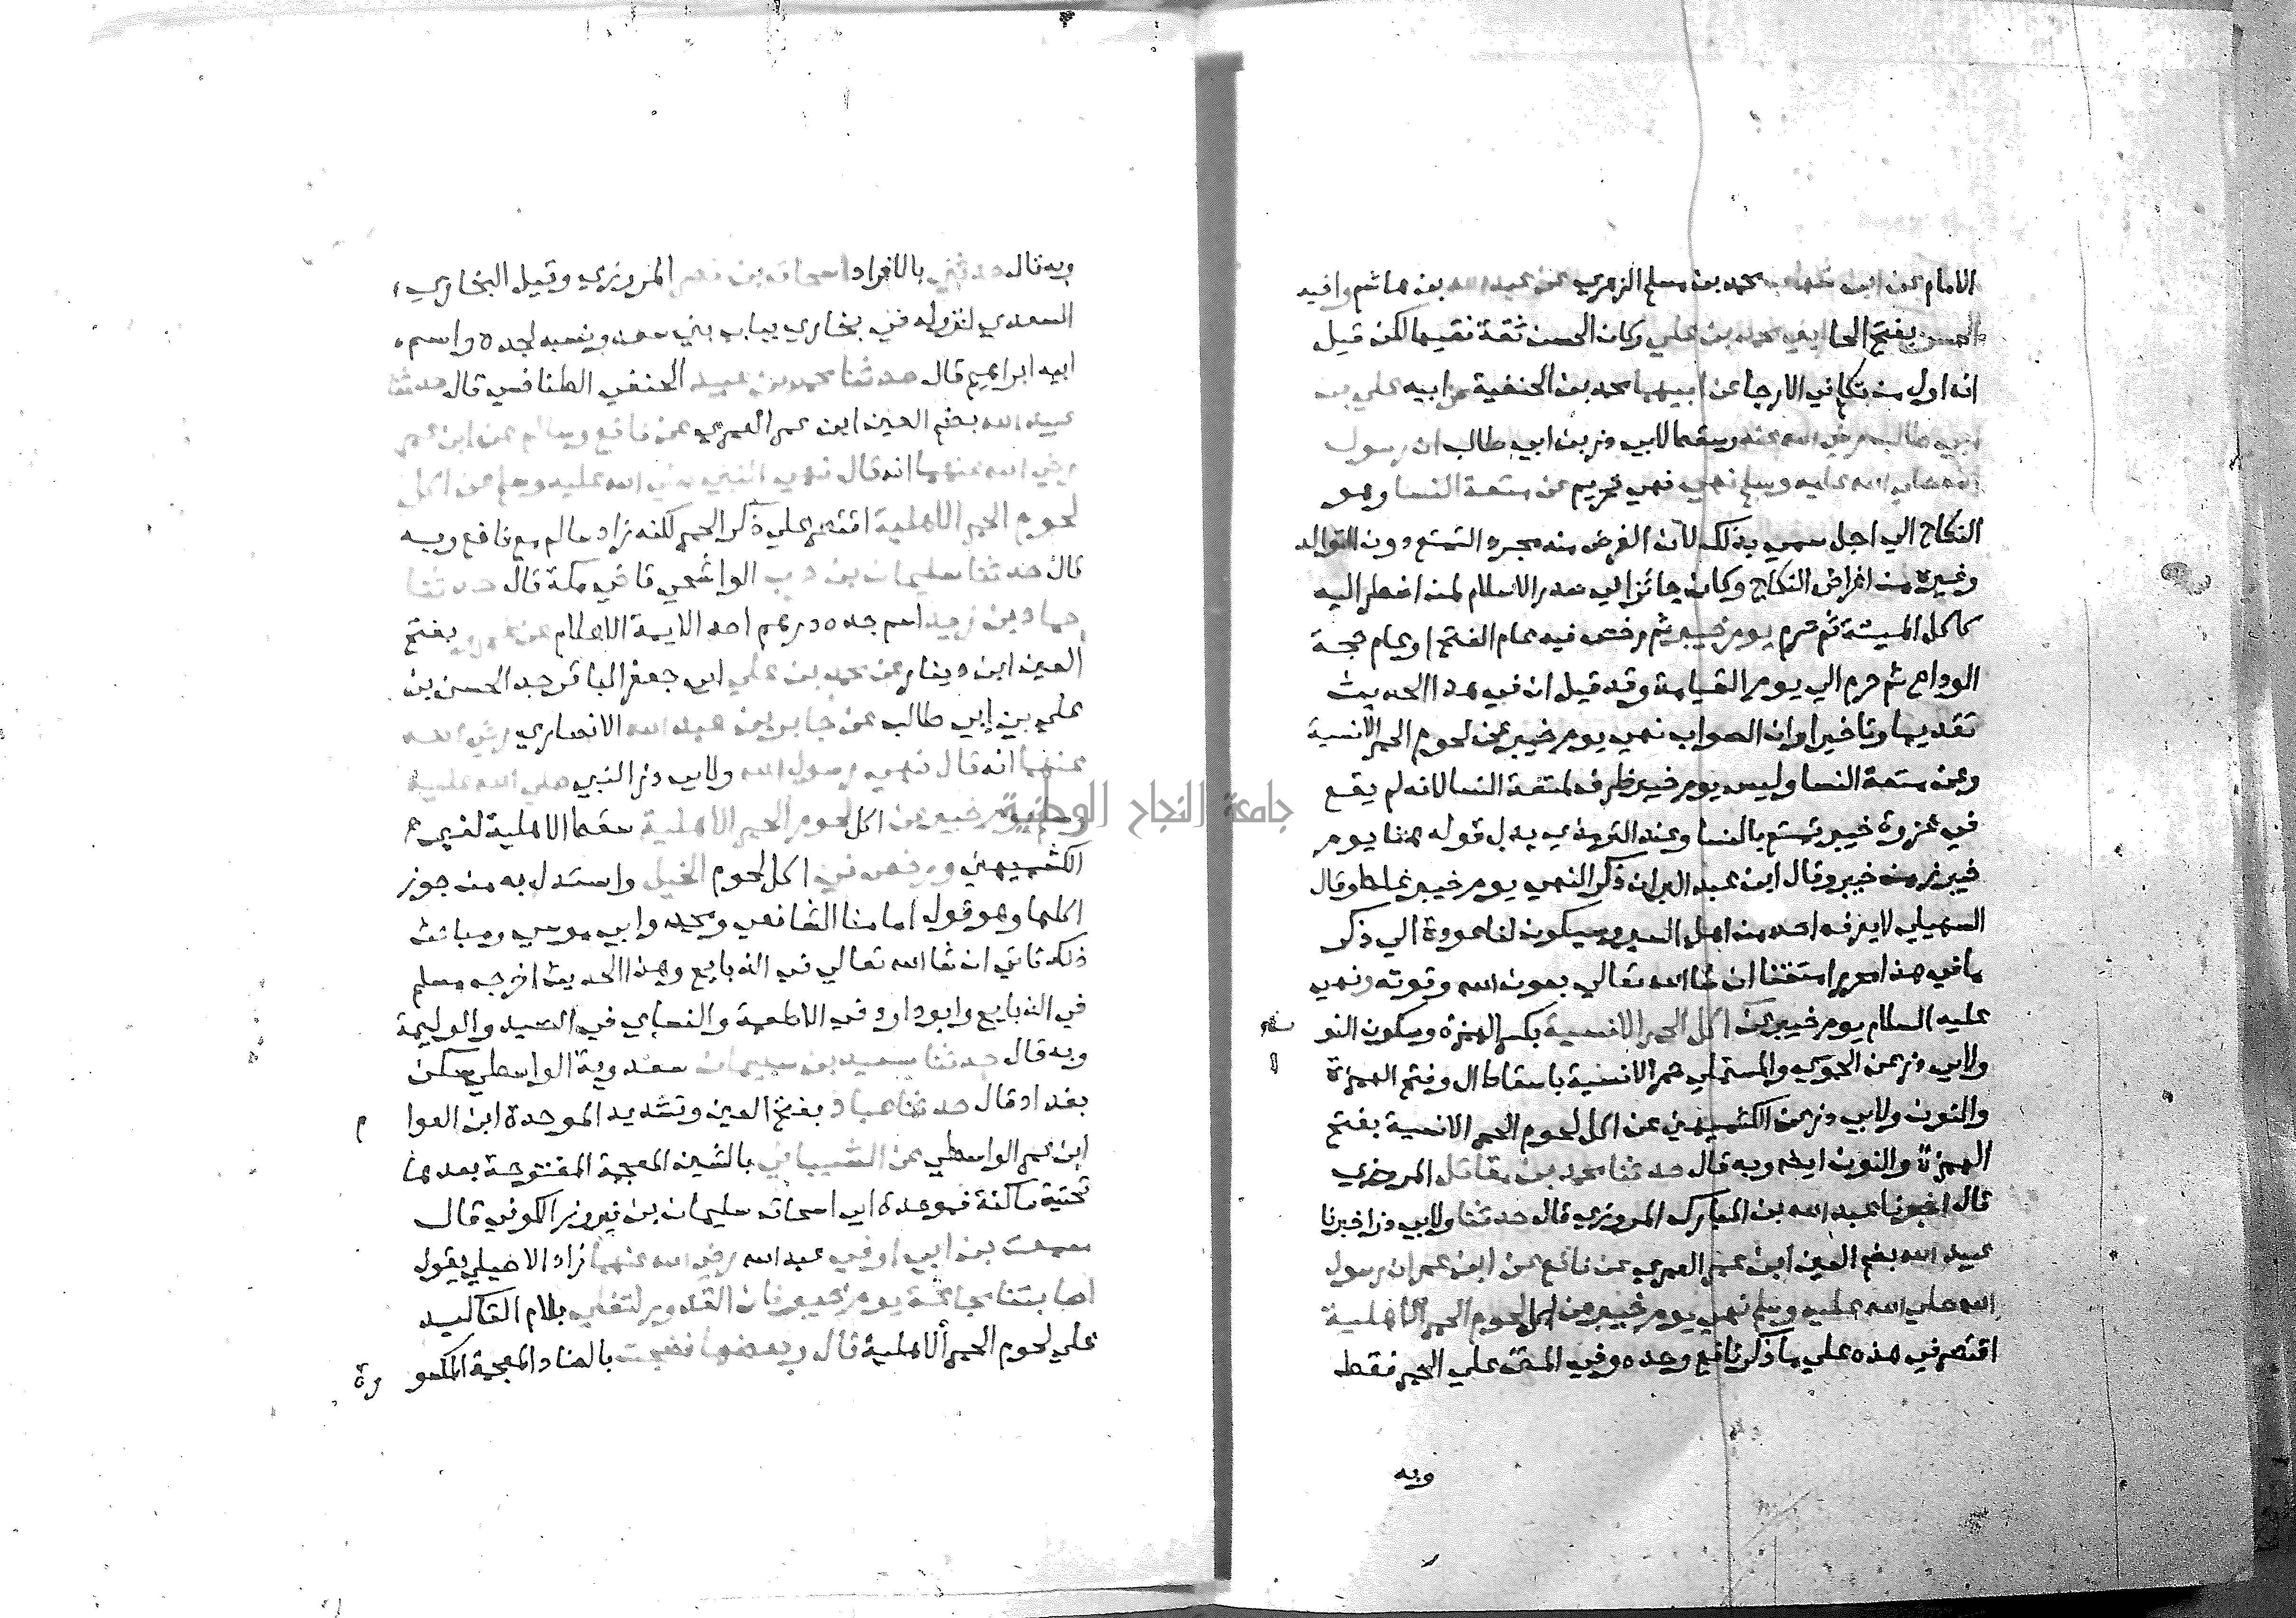 الامام عن ابن شهاب محمد بن مسلم الزهري عن عبد الله بن هاشم واخيه
الحسن بفتح الحا ابني محمد بن علي وكان الحسن ثقة فقيها لكن قيل
انه اول من تكلم في الارجا عن ابيهما محمد بن الحنفية عن ابيه علي بن
ابي طالب رضي الله عنه وسقط لابي ذر بن ابي طالب ان رسول
الله صلي الله عليه وسلم نهي نهي تحريم عن متعة النسا وهو
النكاح الي اجل سمي بذلك لان الغرض منه مجرد التمتع دون التوالد
وغيره من اغراض النكاح وكان جائزا في صدر الاسلام لمن اضطر اليه
كاكل الميتة ثم حرم يوم خيبر ثم رخص فيه عام الفتح او عام حجة
الوداع ثم حرم الي يوم القيامة وقد قيل ان في هذا الحديث
تقديما وتاخيرا وان الصواب نهي يوم خيبر عن لحوم الحمر الانسية
وعن متعة النسا وليس يوم خيبر ظرف لمتعة النسا لانه لم يقع
في غزوة خيبر تمتع بالنسا وعند الترمذي بدل قوله هنا يوم
خيبر زمن خيبر وقال ابن عبد البر ان ذكر النهي يوم خيبر غلط وقال
السهيلي لا يعرفه احد من اهل السير وسيكون لنا عودة الي ذكر
ما في هذا ان شا الله تعالي بعون الله وقوته ونهي
عليه السلام يوم خيبر عن اكل الحمر الانسية بكسر الهمزة وسكون النو
ولابي ذر عن الحموي والمستملي حمر الانسية باسقاط ال وفتح الهمزة
والنون ولابي ذر عن الكشميهني عن اكل لحوم الحمر الانسية بفتح
الهمزة والنون ايضا وبه قال حدثنا محمد بن مقاتل المروزي
قال اخبرنا عبد الله بن المبارك المروزي قال حدثنا ولابي ذر اخبرنا
عبيد الله بضم العين ابن عمر العمري عن نافع عن ابن عمر ان رسول
الله صلي الله عليه وسلم نهي يوم خيبر عن اكل لحوم الحمر الاهلية
اقتصر في هذه علي ما ذكر نافع وحده وفي المتن علي الحمر فقط
وبه
وبه قال حدثني بالافراد اسحاق بن نصر المروزي وقيل البخاري
السعدي لنزوله في بخاري بباب بني سعد ونسبه لجده واسم
ابيه ابراهيم قال حدثنا محمد بن عبيد الحنفي الطنافسي قال حدثنا
عبيد الله بضم العين ابن عمر العمري عن نافع وسالم عن ابن عمر
رضي الله عنهما انه قال نهي النبي صلي الله عليه وسلم عن اكل
لحوم الحمر الاهلية اقتصر علي ذكر الحمر لكنه زاد سالم مع نافع وبه
قال حدثنا سليمان بن حرب الواشحي قاضي مكة قال حدثنا
حماد بن زيد اسم جده درهم احد الايمة الاعلام عن عمرو بفتح
العين ابن دينار عن محمد بن علي ابي جعفر الباقر جد الحسن بن
علي بن ابي طالب عن جابر بن عبد الله الانصاري رضي الله
عنهما انه قال نهي رسول الله ولابي ذر النبي صلي الله عليه
وسلم يوم خيبر عن اكل لحوم الحمر الاهلية سقط الاهلية لغير
الكشميهني ورخص في اكل لحوم الخيل واستدل به من جوز
اكلها وهو قول امامنا الشافعي ومحمد وابي يوسف ومباحث
ذلك تاتي ان شا الله تعالي في الذبايح وهذا الحديث اخرجه مسلم
في الذبايح وابو داود في الاطعمة والنساي في الصيد والوليمة
وبه قال حدثنا سعيد بن سليمان سعدوية الواسطي سكن
بغداد قال حدثنا عباد بفتح العين وتشديد الموحدة ابن العوا م
ابن عمر الواسطي عن الشيباني بالشين المعجمة المفتوحة بعدها
تحتية ساكنة فموحدة ابي اسحاق سليمان بن فيروز الكوفي قال
سمعت بن ابي اوفي عبد الله رضي الله عنهما زاد الاصيلي يقول
اصابتنا مجاعة يوم خيبر فان القدور لتغلي بلام التاكيد
علي لحوم الحمر الاهلية قال وبعضها نضجت بالضاد المعجمة المكسو رة
جامعة النجاح الوطنية